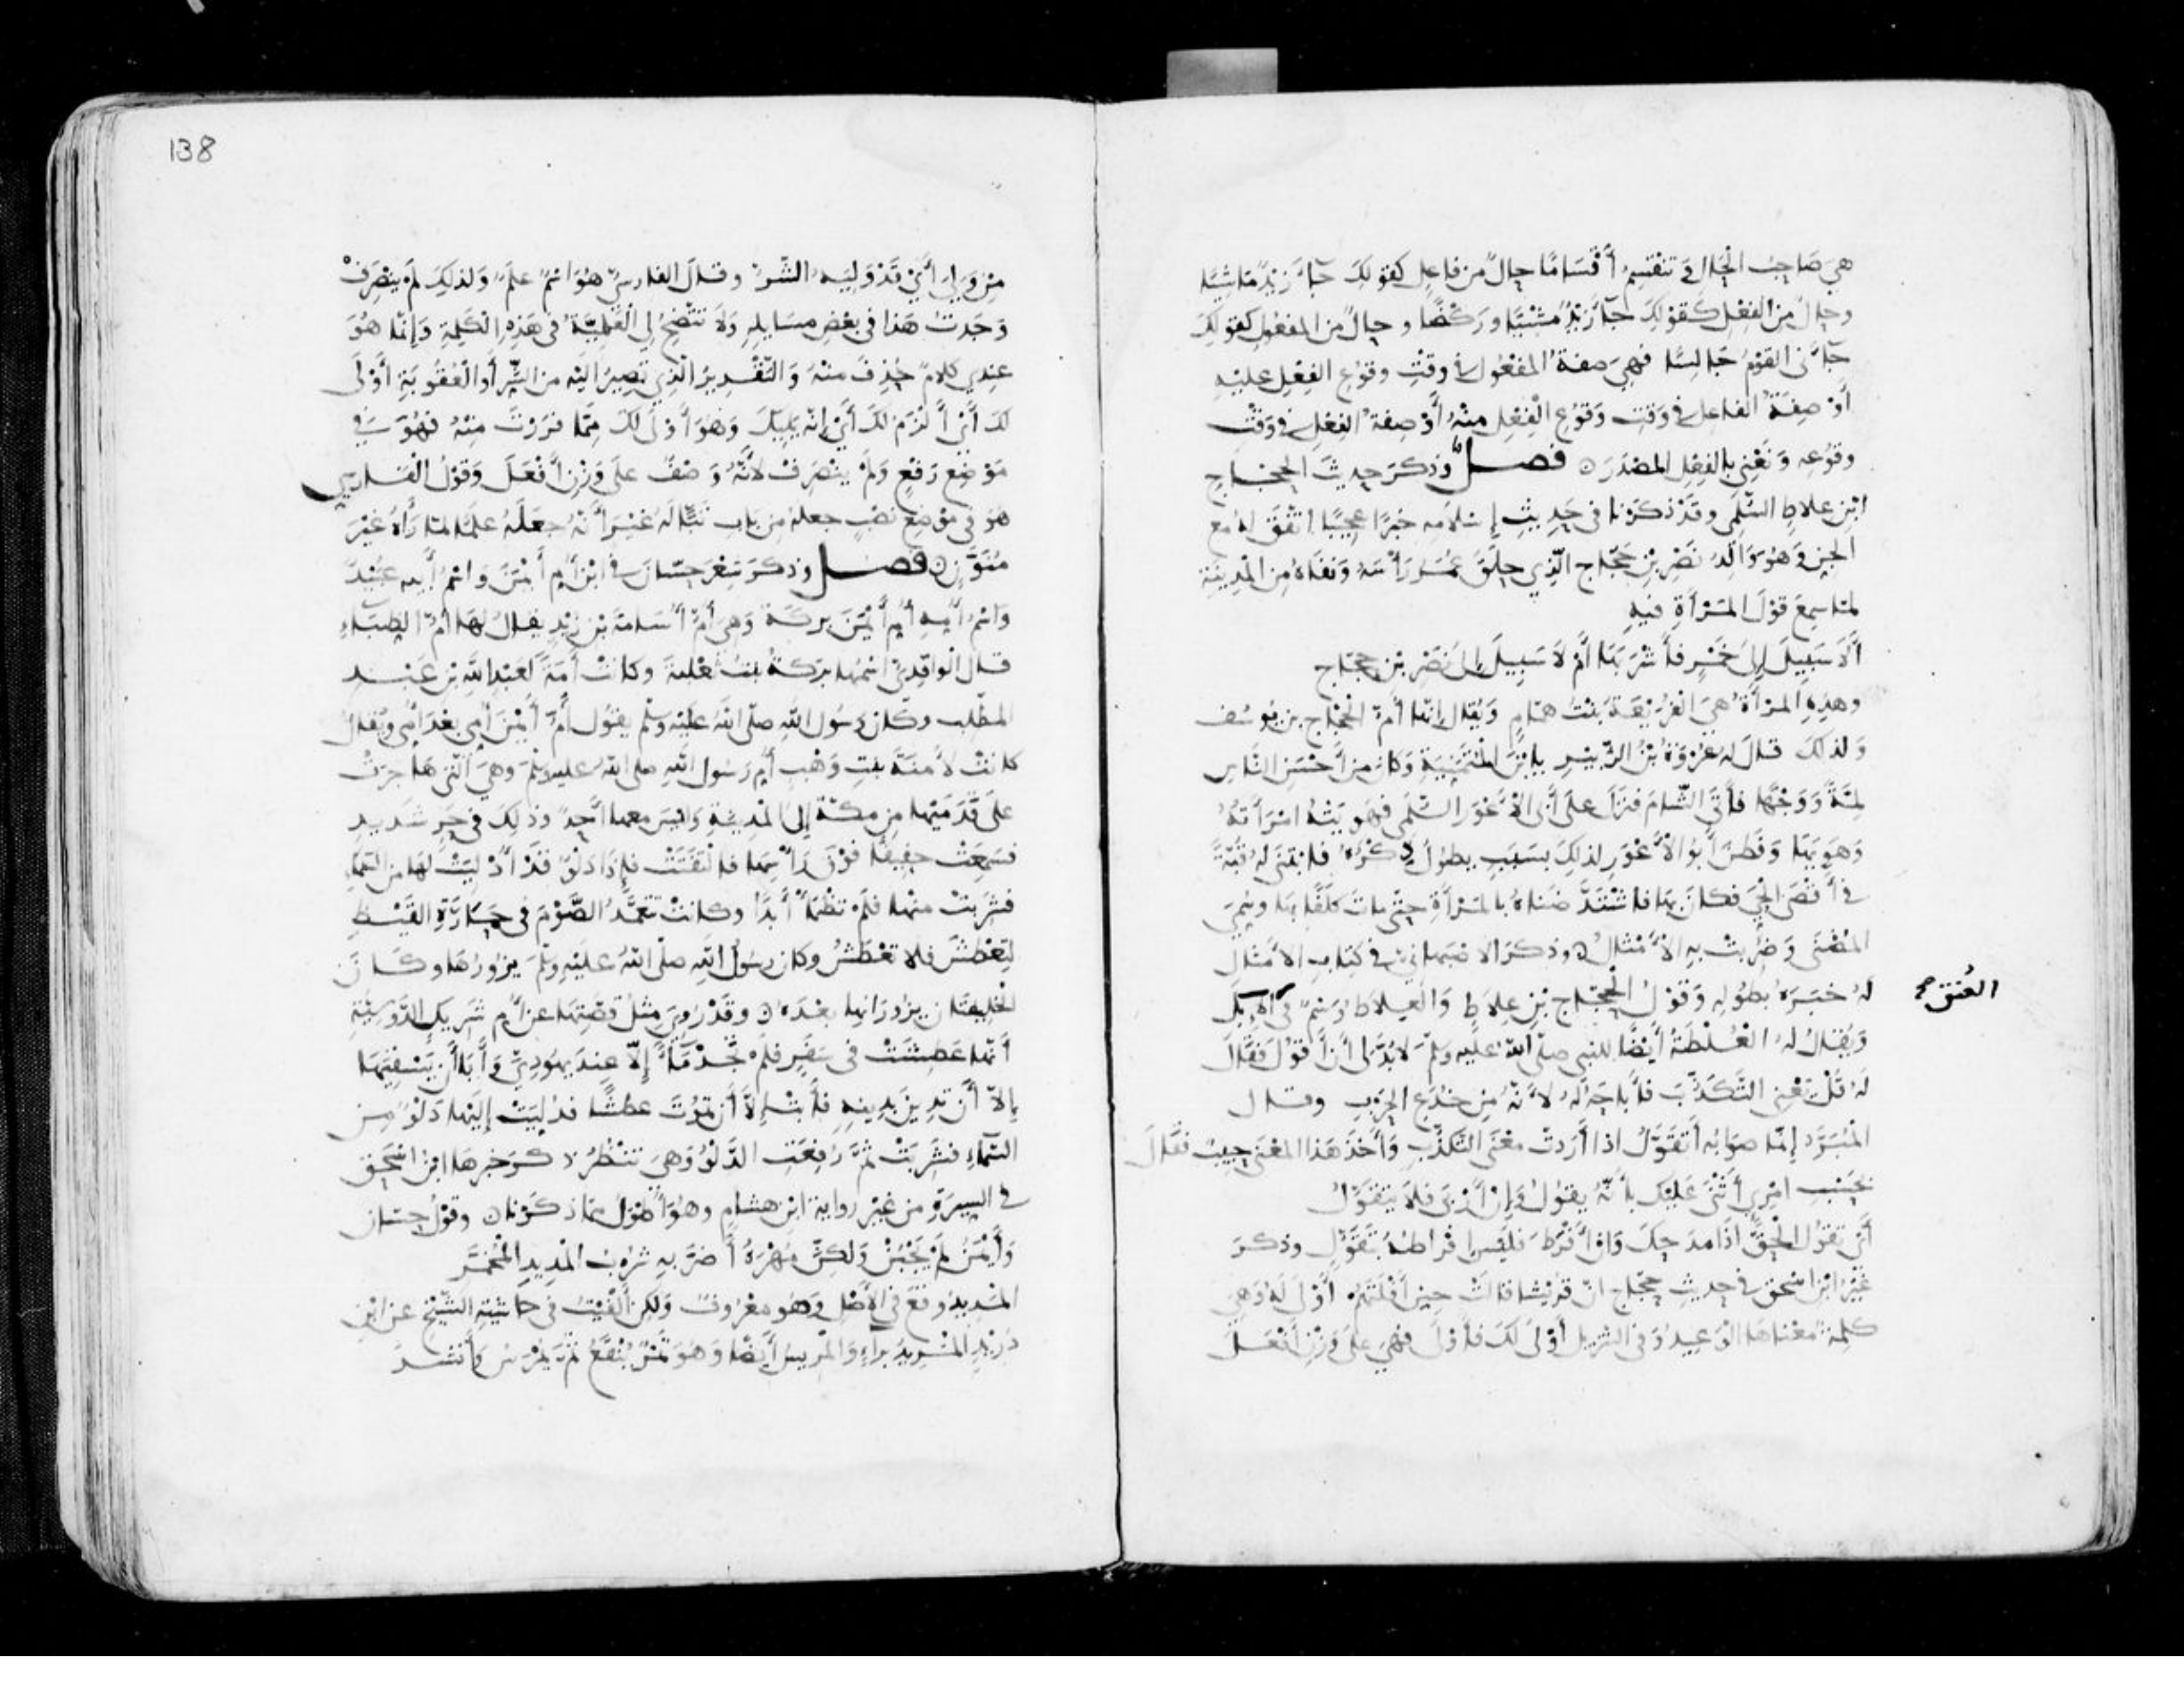 هِيَ صَاحِبُ الْحَالِ وَتَنْقَسِمُ أَقْسَامًا حَالٌ مِن فَاعِلٍ كَقَوْلِكَ جَاءَ زَيْدٌ مَاشِيًا
وحالٌ مِنَ الفِعْلِ كَقَوْلِكَ جَاءَ زَيْدٌ مَشْيًا وَرَكْضًا وحالٌ مِن المفعولِ كقولِكَ
جَاءَنِى القَوْمُ جَالِسًا فَهِيَ صفةُ المفعُول فى وقتِ وقوع الفِعْلِ عليْهِ
أَوْ صِفَةُ الفاعل فى وَقتِ وُقُوعِ الْفِعْلِ مِنْهُ أَوْ صِفَةُ الفِعْلِ فى وَقْتِ
وقوُعِهِ وَنَعْنِى بالفِعْلِ المصْدَرَ ۞ فصل وذكَرَ حديثَ الحجَّاجِ
ابْنِ عِلَاطٍ السُّلَمِى وقَدْ ذكَرْنا فى حَديثِ إسْلَامِهِ خَبَرًا عجيبًا اتَّفَقَ لهُ مع
الجِنِّ وَهُوَ وَالِدُ نَصْرِ بْنِ حَجَّاج الَّذِي حَلَقَ عُمَرُ رَأْسَهُ وَنفَاهُ مِنَ الْمَدِينَةِ
لمَّا سمِعَ قوْلَ المَرْأَةِ فِيهِ
أَلَا سَبِيلَ إِلَى خَمْرٍ فأَشْرَبَهَا أَمْ لَا سَبِيلَ إِلى نَصْرِ بْنِ حجَّاجِ
وهذِهِ المرْأَةُ هِيَ الفُرَيْعَةُ بنْتُ همَّامٍ وَيُقَالُ إنَّهَا أُمّ الحَجَّاج بن يُوسُف
وَلذلكَ قالَ لهُ عُرْوَةُ بْنُ الزُّبَيْرِ يا بْنَ الْمُتَمَنِّيَةِ وَكانَ مِنْ أَحْسَنِ النَّاسِ
لِمَّةً وَوَجْهًا فأَتَى الشَّامَ فنزَلَ علَى أَبى الأَعْوَرِ السُّلَمِى فهَوِيَتْهُ امْرَأَتُهُ
وَهَوِيَهَا وَفَطِنَ أَبُو الأَعْوَرِ لذلِكَ بسَبَبٍ يطُولُ ذِكْرُهُ فابْتَنَى لهُ قُبَّةً
فى أَقْصَى الحَيِّ فكانَ بهَا فاشْتَدَّ ضَنَاهُ بالمَرْأَةِ حتَّى ماتَ كَلَفًا بهَا وسُمِّيَ
المُضْنَى وَضُرِبَتْ بهِ الأَمْثَالُ ۞ وذكَرَ الأصْبَهَانِىُّ فى كِتابِ الأَمْثَالِ
لهُ خَبَرَهُ بطُولِهِ وَقوْلُ الْحَجَّاج بْنِ عِلَاطٍ وَالعِلَاطُ وَسْمٌ فى الإبِل
العُنُق صح
وَيُقَالُ لهُ العُلْطَةُ أَيْضًا للنَّبى صلَّى اللهُ عليْهِ وسلّم لَا بُدَّ لى أَنْ أَقُولَ فَقالَ
لهُ قُلْ يَعْنى التَّكَذُّبَ فأَباحَهُ لَهُ لأَنَّهُ مِنْ خُدَعِ الحَرْبِ وقال
المُبَرِّدُ إنَّمَا صوَابُه أَتَقَوَّلُ اذا أَرَدتَّ مَعْنَى التَّكَذُّبِ وَأَخذَ هَذا المعْنَى حبيبٌ فقالَ
بحَسْبِ امْرِئٍ أَثْنَى عَلَيْكَ بأَنَّهُ يقُولُ وَإنْ أَرْبَى فلَا يَتَقَوَّلُ
أَىْ يقُوُلُ الحَقَّ اذَا مَدَحكَ وَإنْ أَفْرَطَ فليْسَ إفْراطُهُ بتَقَوُّلٍ وذكرَ
غَيْرُ ابْنِ اسْحٰق فى حديثِ حَجَّاجٍ انَّ قُرَيْشًا قالَتْ حِينَ أَفْلَتَهُمْ أَوْلَى لَهُ وَهِيَ
كلِمةٌ مَعْناهَا الوَعِيدُ وَفى التنزيل أَوْلَى لَكَ فأَوْلَى فهِيَ علَى وَزْنِ أَفْعَلَ
138
مِنْ وَلِىَ أَىْ قَدْ وَلِيَهُ الشَّرُّ وقالَ الفارسىُّ هُوَ اسْمٌ علَمٌ وَلذلِكَ لمْ يَنْصَرِفْ
وَجَدتُّ هَذا فى بَعْضِ مَسَايلهِ وَلَا تَتَّضِحُ لِى العَلَمِيَّةُ فى هَذِهِ الكَلِمَةِ وَإنَّمَا هُوَ
عِنْدِى كلَامٌ حُذِفَ مِنْهُ وَالتَّقْدِيرُ الَّذِى تَصِيرُ الَيْهِ مِنَ الشَّرِّ أَوِ العُقُوبَةِ أَوْلَى
لَكَ أَىْ أَلْزَمُ لكَ أَىْ إنَّهُ يَلِيكَ وَهُوَ أَوْلَى لكَ مِمَّا فرَرْتَ مِنْهُ فهُوَ فى
مَوْضِع رَفْعٍ وَلَمْ يَنْصَرِفْ لأنَّهُ وَصْفٌ علَى وَزْنِ أَفْعَلَ وَقَوْلُ الْفَارِسِى
هوَ فى مَوْضِعِ نصْبٍ جعلَهُ مِن بَابِ تَبًّا لَهُ غَيْرَ أَنَّهُ جَعَلَهُ علَمًا لمَّا رَأَهُ غَيْرَ
مُنَوَّنٍ ۞ فصل وذكَرَ شِعْرَ حسّانَ فى ابْنِ أُمِّ أَيْمَنَ وَاسْمُ أَبيهِ عُبَيْدٌ
وَاسْمُ أُمِّهِ أُمِّ أَيْمَنَ بَرَكَةُ وَهِىَ أُمُّ أُسَامَةَ بْنِ زَيْدٍ يقالُ لهَا أُمُّ الظِّبَاءِ
قالَ الْواقِدِىُّ اسْمُهَا بَرَكةُ بنتُ ثَعْلَبَةَ وكانتْ أَمَةً لعَبْدِ اللَّهِ بْن عَبْدِ
المطَّلِب وكان رَسُول اللَّهِ صلَّى اللهُ عليْهِ وسلَّم يقُول أُمُّ أَيْمَنَ أُمِّى بعْدَ أُمِّى ويُقالُ
كانتْ لآمِنَةَ بنتِ وَهْبٍ أُمِّ رَسُول اللَّهِ صلى اللهُ عليه وسلّمَ وَهِىَ الَّتى هَاجَرَتْ
علَى قَدَمَيْهَا مِن مكّةَ إلَى المَدِينَةِ وَلَيْسَ معهَا أَحَدٌ وذلكَ فى حَرٍّ شَدِيدٍ
فسَمِعَتْ حَفِيفًا فوْقَ رَأْسِهَا فالْتَفَتَتْ فإذَا دَلْوٌ قَدْ أُدْلِيَتْ لهَا مِنَ السَّمَاءِ
فشَرِبَتْ منها فلَمْ تَظْمَأْ أَبَدًا وكانتْ تَعَمَّدُ الصَّوْمَ فى حَمَارَّةِ القَيْظِ
لِتَعْطَشَ فلَا تَعْطَشُ وكان رسُولُ اللَّهِ صلَّى اللهُ عَليْهِ وسَلّمَ يزُورُهَا وكَانَ
الْخلِيفتَانِ يزُورَانِهَا بعْدَهُ ۞ وقَدْ رُوِىَ مِثلُ قصَّتِهَا عنْ أُمِّ شَريكٍ الدَّوْسِيَّةِ
أَنَّهَا عَطِشَتْ فى سَفَرٍ فلَمْ تَجِدْ مَآءً إلّا عِندَ يهُودِىٍّ وَأَبَى أَن يَسْقِيَهَا
إلّا أَن تَدِينَ بدِينِهِ فأَبَتْ إلَّا أَن تَمُوتَ عطَشًا فدُلِّيَتْ إلَيْهَا دَلْوٌ مِن
السَّمَاءِ فشَرِبَتْ ثمَّ رُفِعَتِ الدَّلْوُ وَهِىَ تَنْظُرُ ذكَرَ خبرَهَا ابْنُ اسْحٰق
فى السِّيرَةِ مِن غيْرِ روايةِ ابْنِ هشامٍ وهُوَ أَطْوَلُ ممّا ذكَرْنا ۞ وقوْلُ حسّان
وَأَيْمَنُ لَمْ يَجْبُنْ وَلكِنَّ مُهْرَهُ أَضَرَّ بهِ شُرْبُ المَدِيدِ المُخَمَّرِ
المَدِيدُ وقعَ فى الأَصْلِ وَهُو مَعْرُوفٌ وَلكِنْ أَلْفَيْتُ فى حاشِيَةِ الشَّيْخِ عن ابْنِ
دُرَيْدٍ المَرِيدُ برَاءٍ وَالمَرِيسُ أَيْضًا وَهُوَ تَمْرٌ يُنْقَعُ ثُمَّ يُمْرَسُ وَأَنْشَدَ